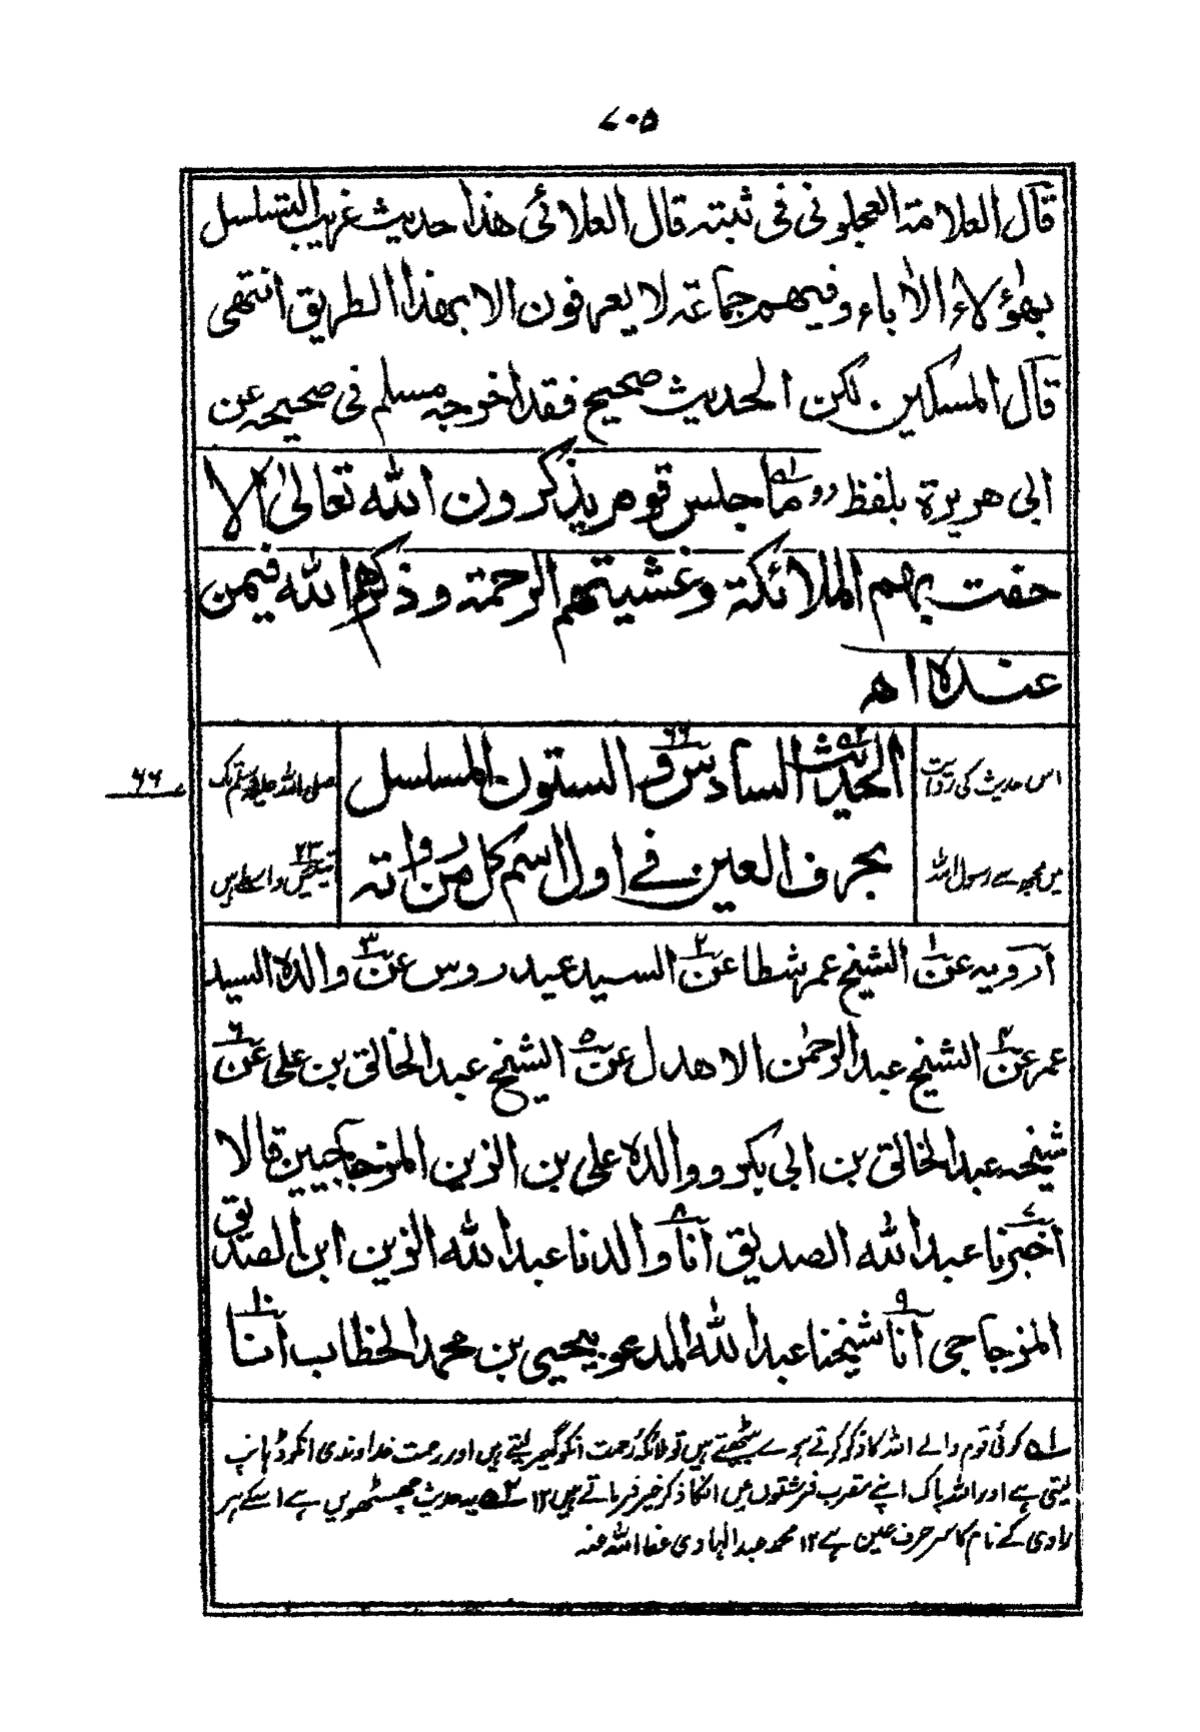 ٧٠٥
قال العلامة العجلوني في ثبته قال العلائي هذا حديث غريب التسلسل
بهٰؤلاء الاٰباء وفيهم جماعة لا يعرفون الا بهذا الطريق انتهى
قال المسكين . لكن الحديث صحيح فقد اخرجه مسلم في صحيحه عن
ابي هريرة بلفظ رو ما ؎۱ جلس قوم يذكرون الله تعالىٰ الا
حفت بهم الملائكة وغشيتهم الرحمة وذكرهم الله فيمن
عنده اھ
اس حدیث کی روایت
میں مجھ سے رسول اللہ
الحديث ؎۲ السادس و الستون ٦٦ المسلسل
بحرف العين في اول اسم كل من رواته
صلی اللہ علیہ وسلم تک
تیئیس ٢٣ واسطے ہیں
٦٦
ارويه عن ١ الشيخ عمر شطا عن ٢ السيد عيدروس عن ٣ والده السيد
عمر عن ٤ الشيخ عبد الرحمٰن الاهدل عن ٥ الشيخ عبد الخالق بن علي عن ٦
شيخه عبد الخالق بن ابي بكر ووالده علي بن الزين المزجاجيين قالا
اخبرنا ٧ عبد الله الصديق انا ٨ والدنا عبد الله الزين ابن الصديق
المزجاجي انا ٩ شيخنا عبد الله المدعو بيحيى بن محمد الخطاب انا ١٠
؎۱ کوئی قوم والے اللہ کا ذکر کرتے ہوے بیٹھتے ہیں تو ملائکۂ رحمت انکو گھیر لیتے ہیں اور رحمت خداوندی انکو ڈھانپ
لیتی ہے اور اللہ پاک اپنے مقرب فرشتوں میں انکا ذکر خیر فرماتے ہیں ۱۲ ؎۲ یہ حدیث چھسٹھویں ہے اسکے ہر
راوی کے نام کا سر حرف عین ہے ۱۲ محمد عبد الہادی عفا اللہ عنہ